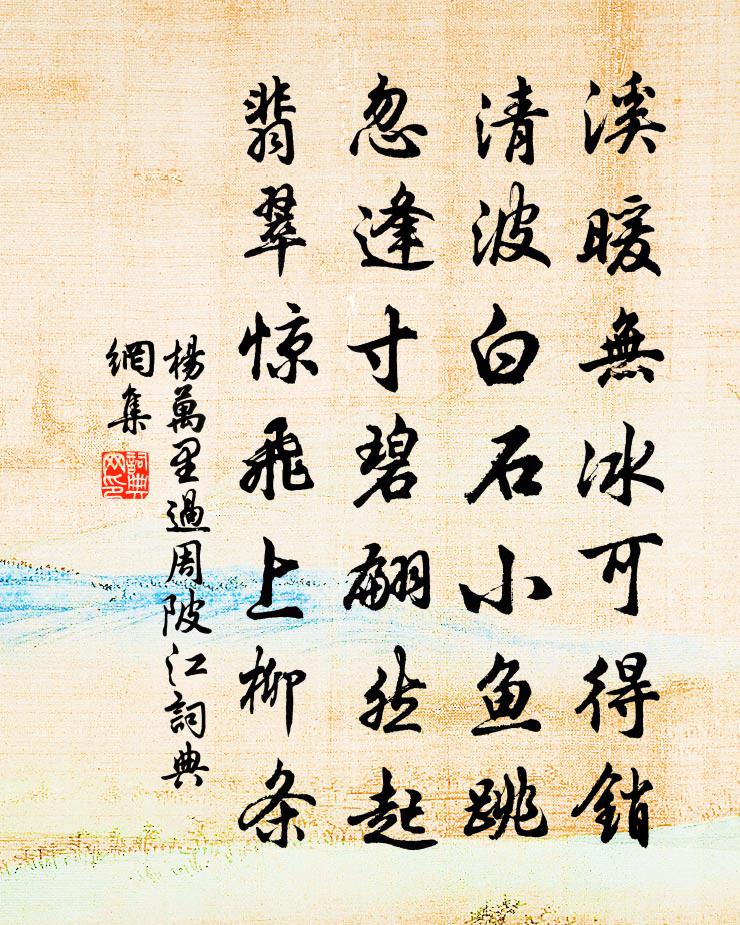 溪暖無冰可得銷
清波白石小鱼跳
忽逢寸碧翩然起
翡翠惊飛上柳条
楊萬里過周陂江詞典
網集
詞典
网印